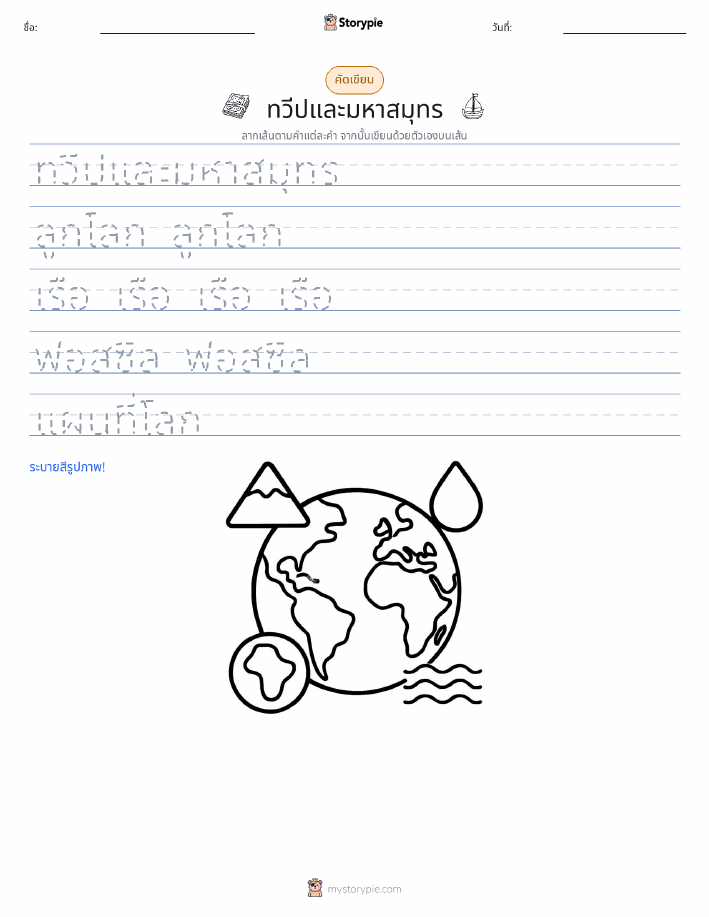 ชื่อ:
Storypie
วันที่:
คัดเขียน
ทวีปและมหาสมุทร
ลากเส้นตามคำแต่ละคำ จากนั้นเขียนด้วยตัวเองบนเส้น
ทวีปและมหาสมุทร
ลูกโลก ลูกโลก
เรือ เรือ เรือ เรือ
ฟอสซิล ฟอสซิล
แผนที่โลก
ระบายสีรูปภาพ!
mystorypie.com